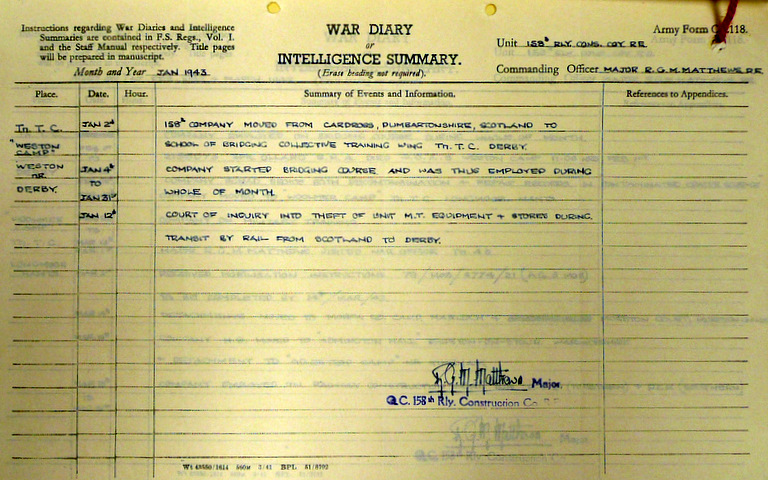 Instructions regarding War Diaries and Intelligence
Summaries are contained in F.S. Regs., Vol. I.
and the Staff Manual respectively. Title pages
will be prepared in manuscript.
Month and Year JAN 1943
WAR DIARY
or
INTELLIGENCE SUMMARY.
(Erase heading not required).
Army Form C 2118.
Unit 158th RLY. CONS. COY RE
Commanding Officer MAJOR R.G.M. MATTHEWS RE
Place. Date. Hour. Summary of Events and Information. References to Appendices.
Tn. T. C. JAN 2nd 158th COMPANY MOVED FROM CARDROSS, DUMBARTONSHIRE, SCOTLAND TO
"WESTON SCHOOL OF BRIDGING COLLECTIVE TRAINING WING Tn. T. C. DERBY.
CAMP"
WESTON JAN 4th COMPANY STARTED BRIDGING COURSE AND WAS THUS EMPLOYED DURING
NR. TO
DERBY. JAN 31st WHOLE OF MONTH.
JAN 12th COURT OF INQUIRY INTO THEFT OF UNIT M.T. EQUIPMENT + STORES DURING
TRANSIT BY RAIL FROM SCOTLAND TO DERBY.
R.G.M. Matthews Major.
O.C. 158th Rly. Construction Co. R.E.
Wt 43550/1614 560M 3/41 BPL 51/8792